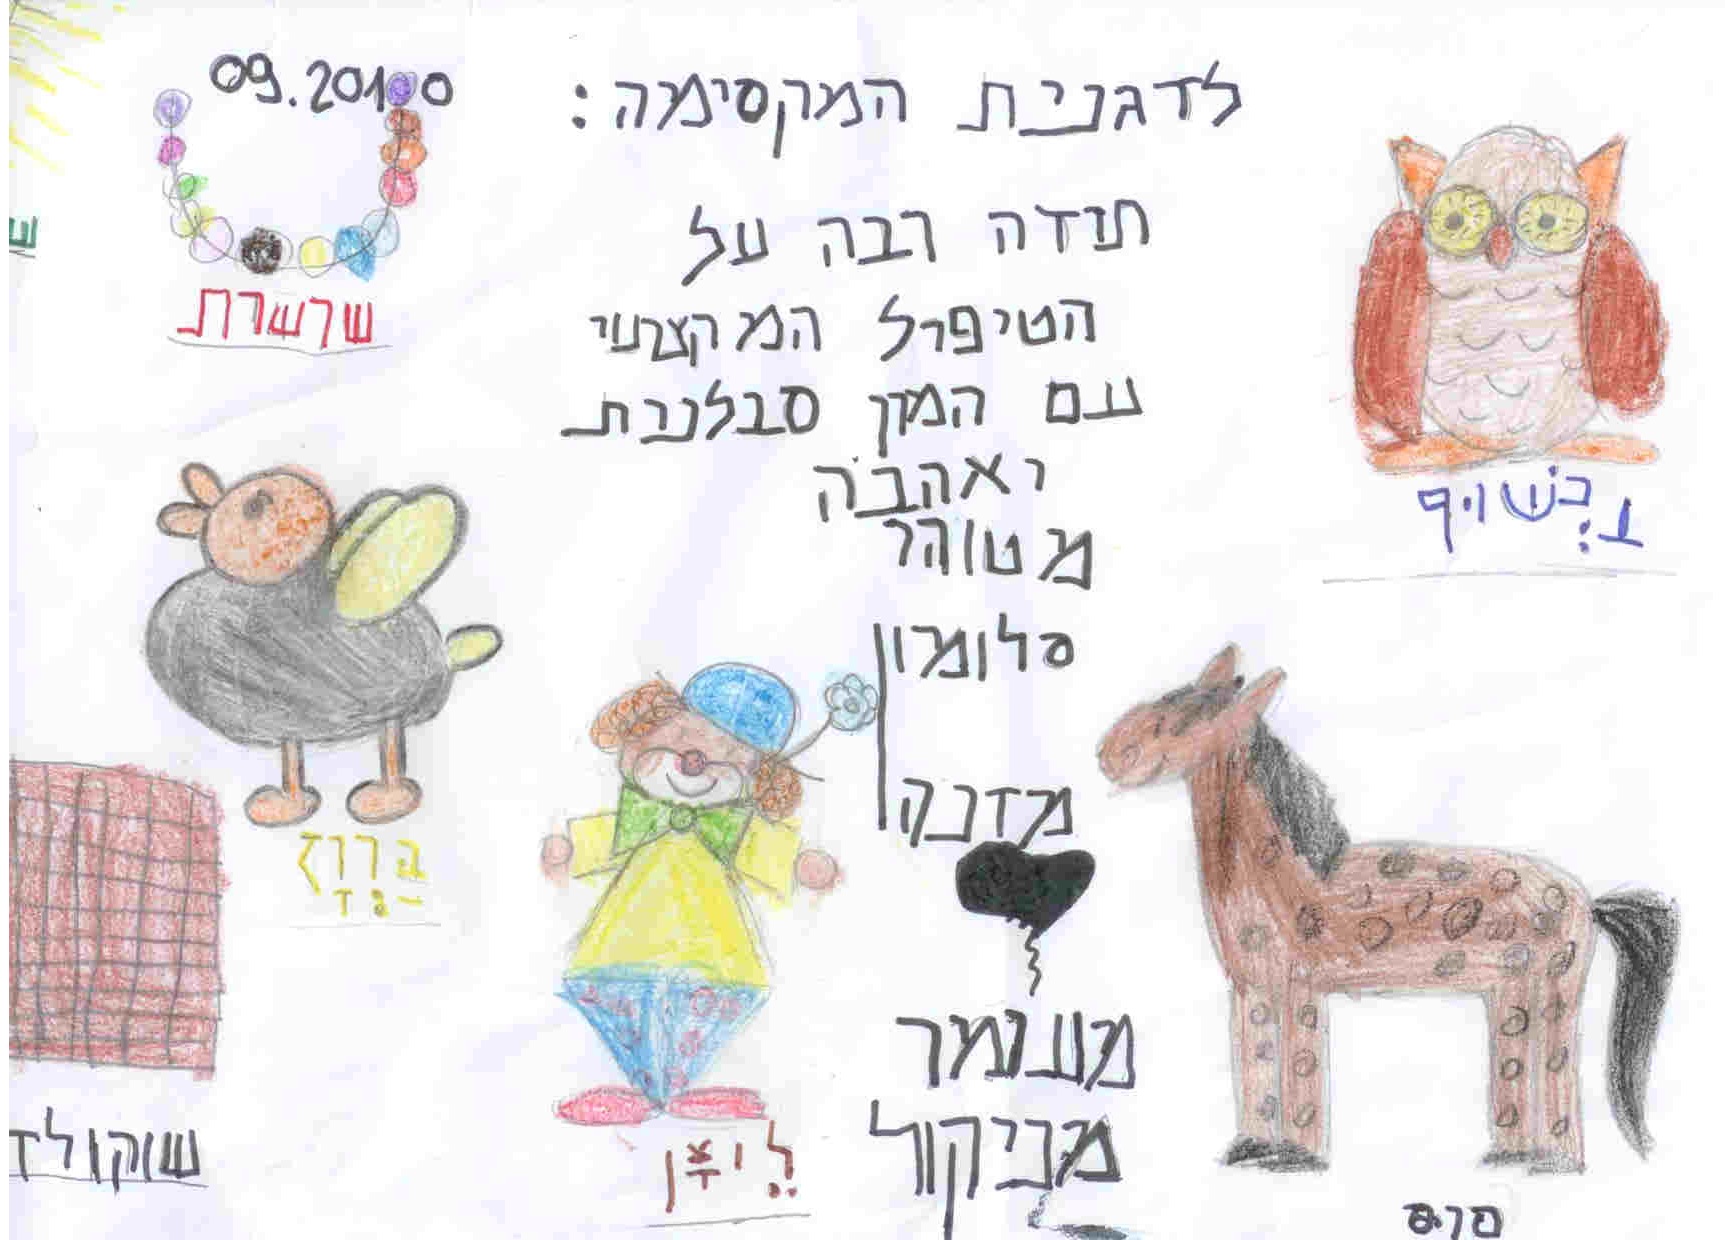 09.2010
לדגנית המקסימה:
תודה רבה על
הטיפול המקצועי
עם המון סבלנות
ואהבה
מטוהר
סלומון
מעומר
מניקול
שרשרת
ברוז
לֵיצָן
סוס
שוקולד